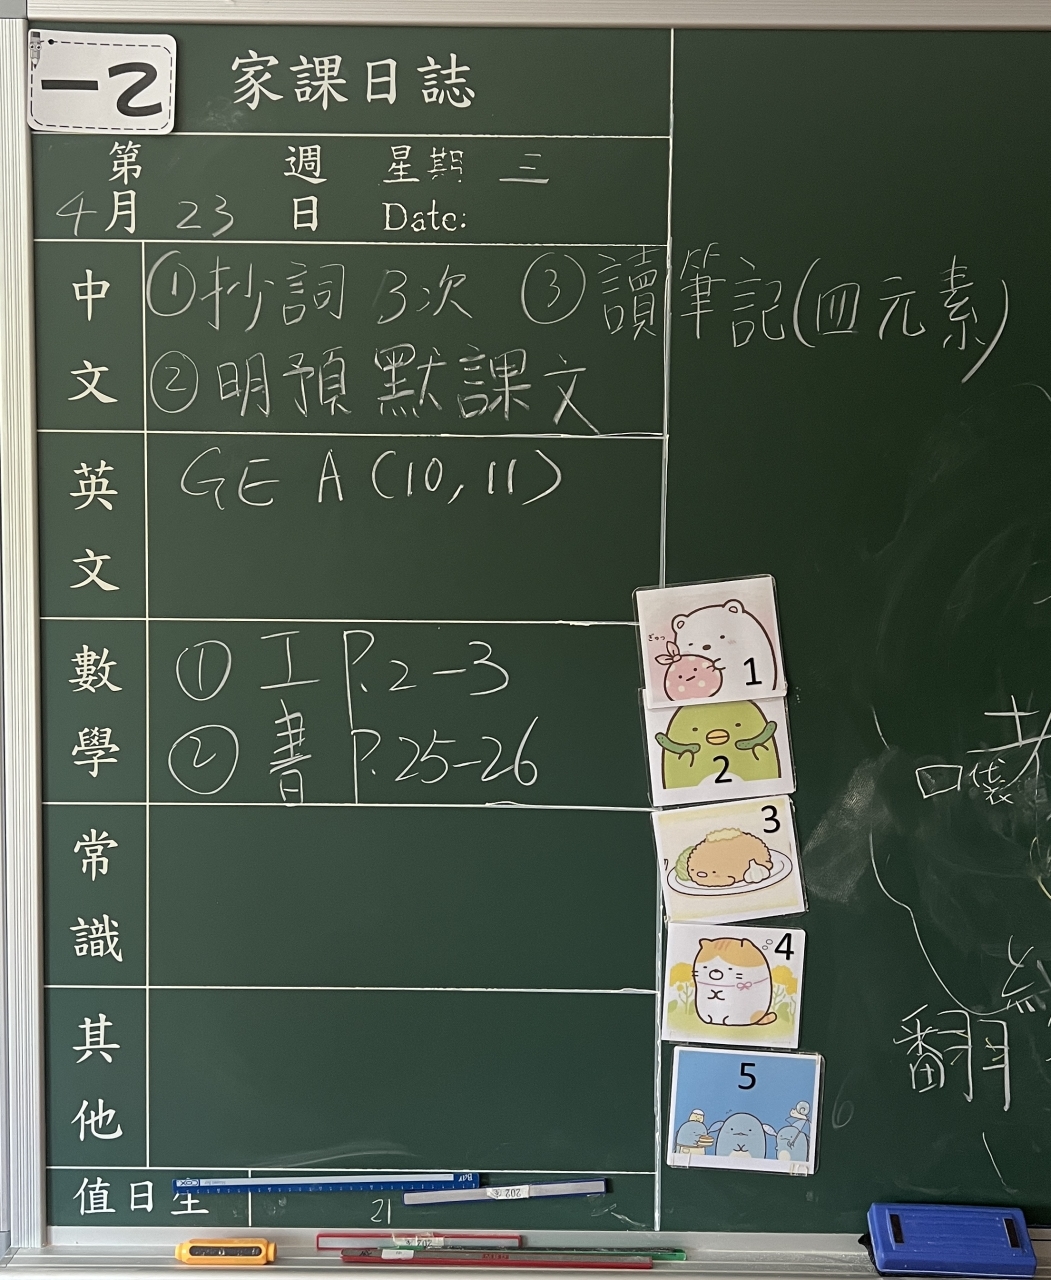 一2
家課日誌
第 週 星期 三
4月 23 日 Date:
中文
①抄詞 3次 ③讀筆記(四元素)
②明預默課文
英文
GE A (10, 11)
數學
① 工 P.2-3
② 書 P.25-26
常識
其他
值日生
21
1
2
3
4
5
口袋
翻